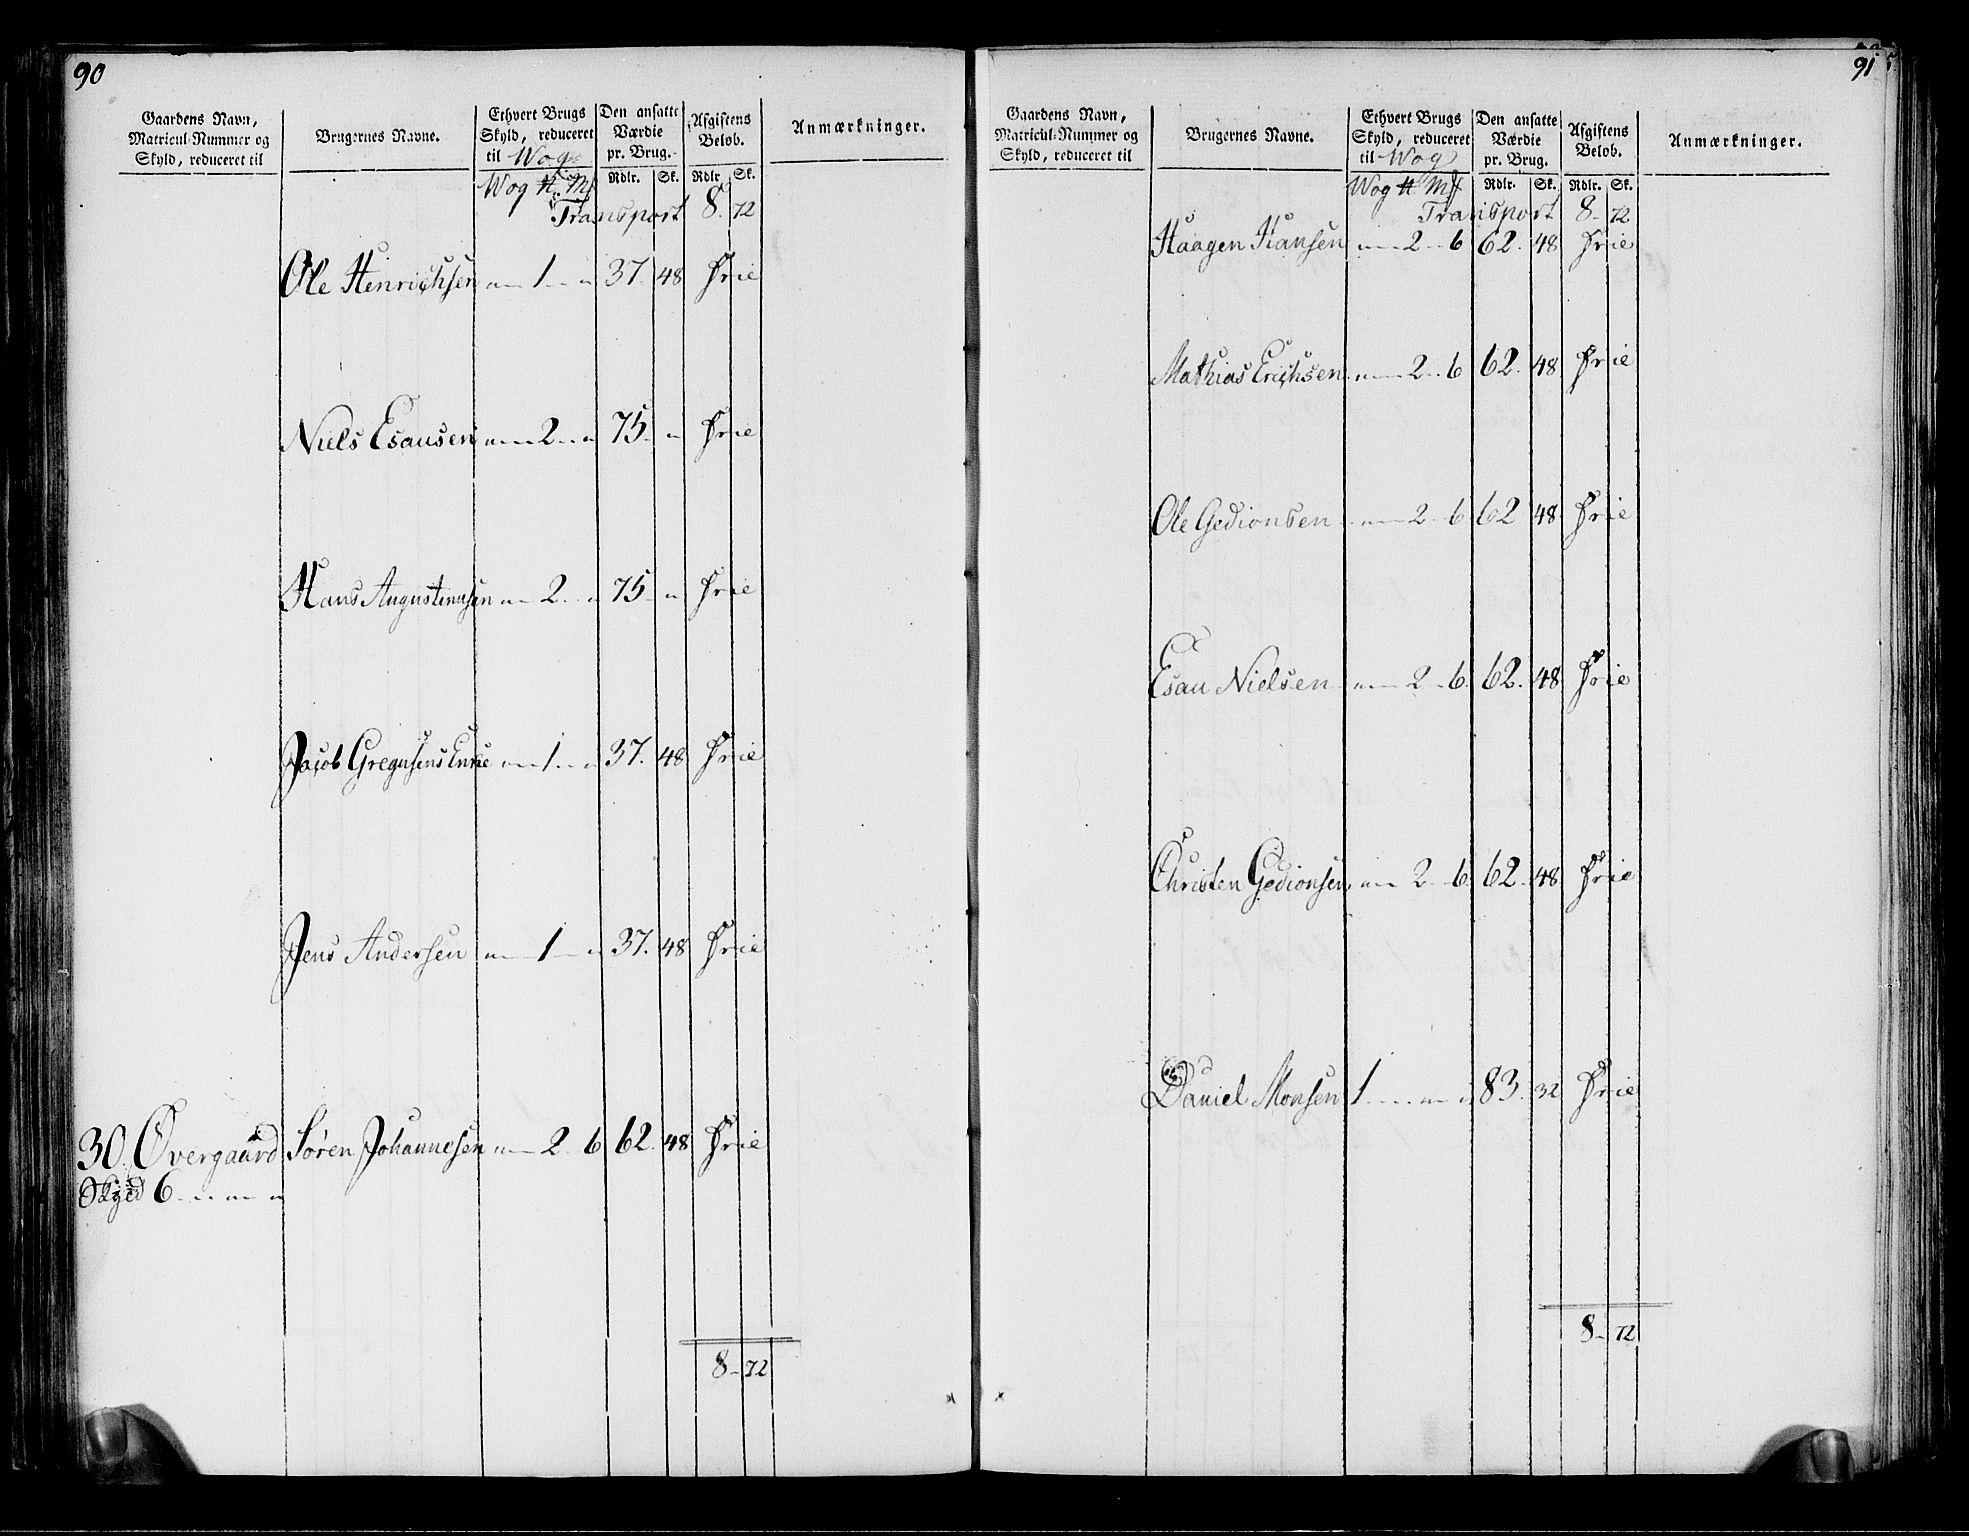 90
Gaardens Navn, Matricul-Nummer og Skyld, reduceret til
Brugernes Navne.
Ethvert Brugs Skyld, reduceret til Wog
Den ansatte Værdie pr. Brug.
Afgiftens Beløb.
Anmærkninger.
Wog ℔ Mk Rdlr. Sk. Rdlr. Sk.
Transport 8. 72
Ole Henrichsen „ 1 „ 37. 48 Frie
Niels Esausen „ 2 „ 75 „ Frie
Hans Augustinusen „ 2 „ 75 „ Frie
Jacob Gregusens Enke „ 1 „ 37. 48 Frie
Jens Andersen „ 1 „ 37. 48 Frie
30. Øvergaard Søren Johannesen „ 2 6 62. 48 Frie
Skyld 6 „ „
8 - 72
91
Gaardens Navn, Matricul-Nummer og Skyld, reduceret til
Brugernes Navne.
Ethvert Brugs Skyld, reduceret til Wog
Den ansatte Værdie pr. Brug.
Afgiftens Beløb.
Anmærkninger.
Wog ℔ Mk Rdlr. Sk. Rdlr. Sk.
Transport 8 - 72
Haagen Hansen „ 2 6 62. 48 Frie
Mathias Erichsen „ 2 6 62. 48 Frie
Ole Gedionsen „ 2 6 62 48 Frie
Esau Nielsen „ 2 6 62. 48 Frie
Christen Gedionsen „ 2 6 62. 48 Frie
Daniel Monsen 1 „ „ 83. 32 Frie
8 - 72